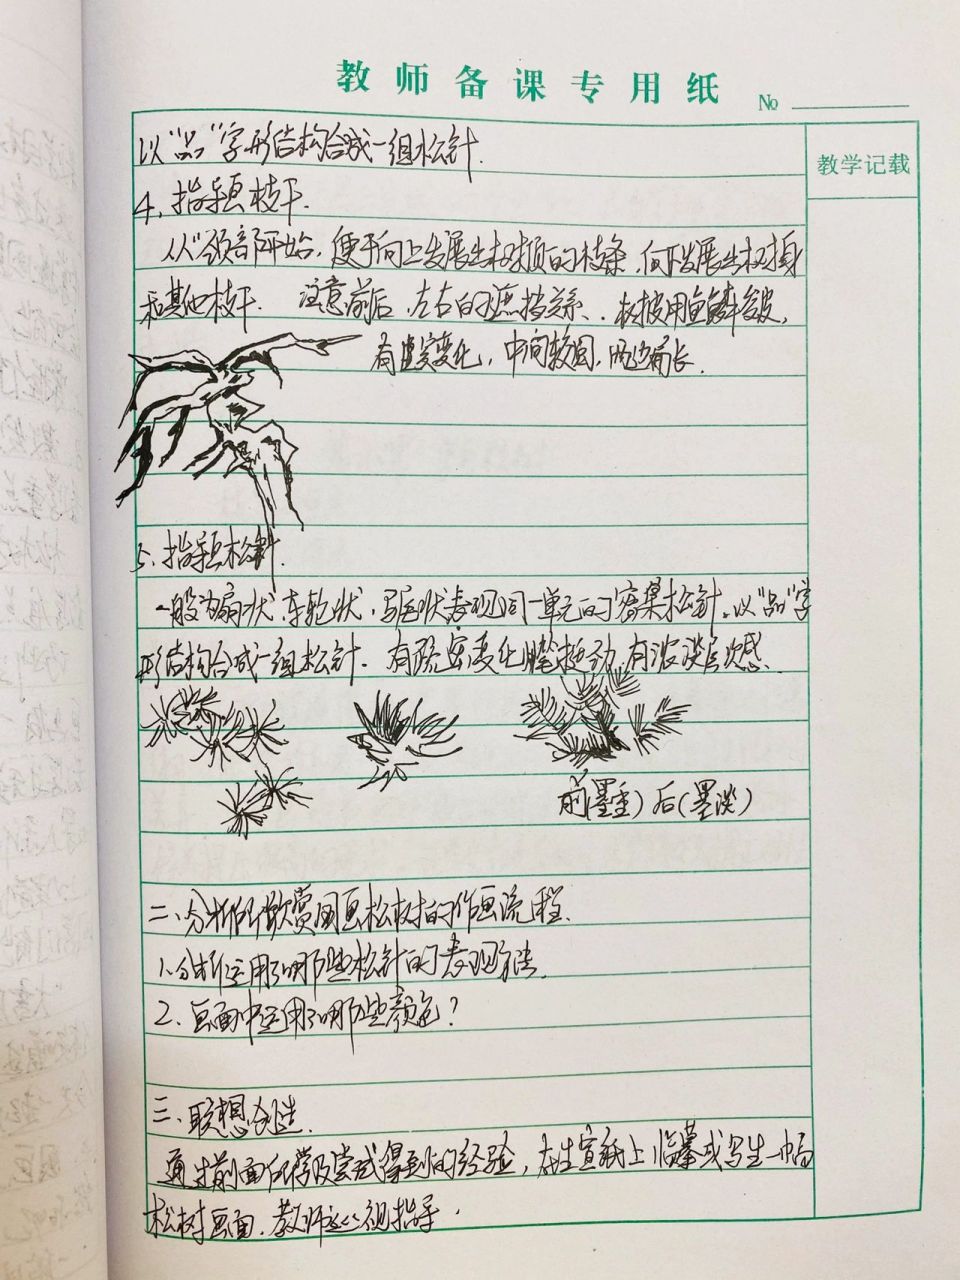 教师备课专用纸
No
教学记载
以"品"字形结构合成一组松针.
4、指导画枝干.
从颈部开始，便于向上发展生树顶的枝条，向下发展生树身
和其他枝干. 注意前后、左右的遮挡关系、树皮用鱼鳞皴，
有虚实变化，中间较圆，两边扁长.
5、指导画松针.
一般为扇状、车轮状、马尾状表现同一单元的密集松针，以"品"字
形结构合成一组松针. 有疏密变化 有浓淡层次感.
前(墨重) 后(墨淡)
二、分析所欣赏国画松树的作画流程.
1、分析运用了哪些松针的表现方法.
2、画面中运用了哪些颜色？
三、联想创造.
通过前面所学及尝试得到的经验，在生宣纸上临摹或写生一幅
松树画面，教师巡视指导.